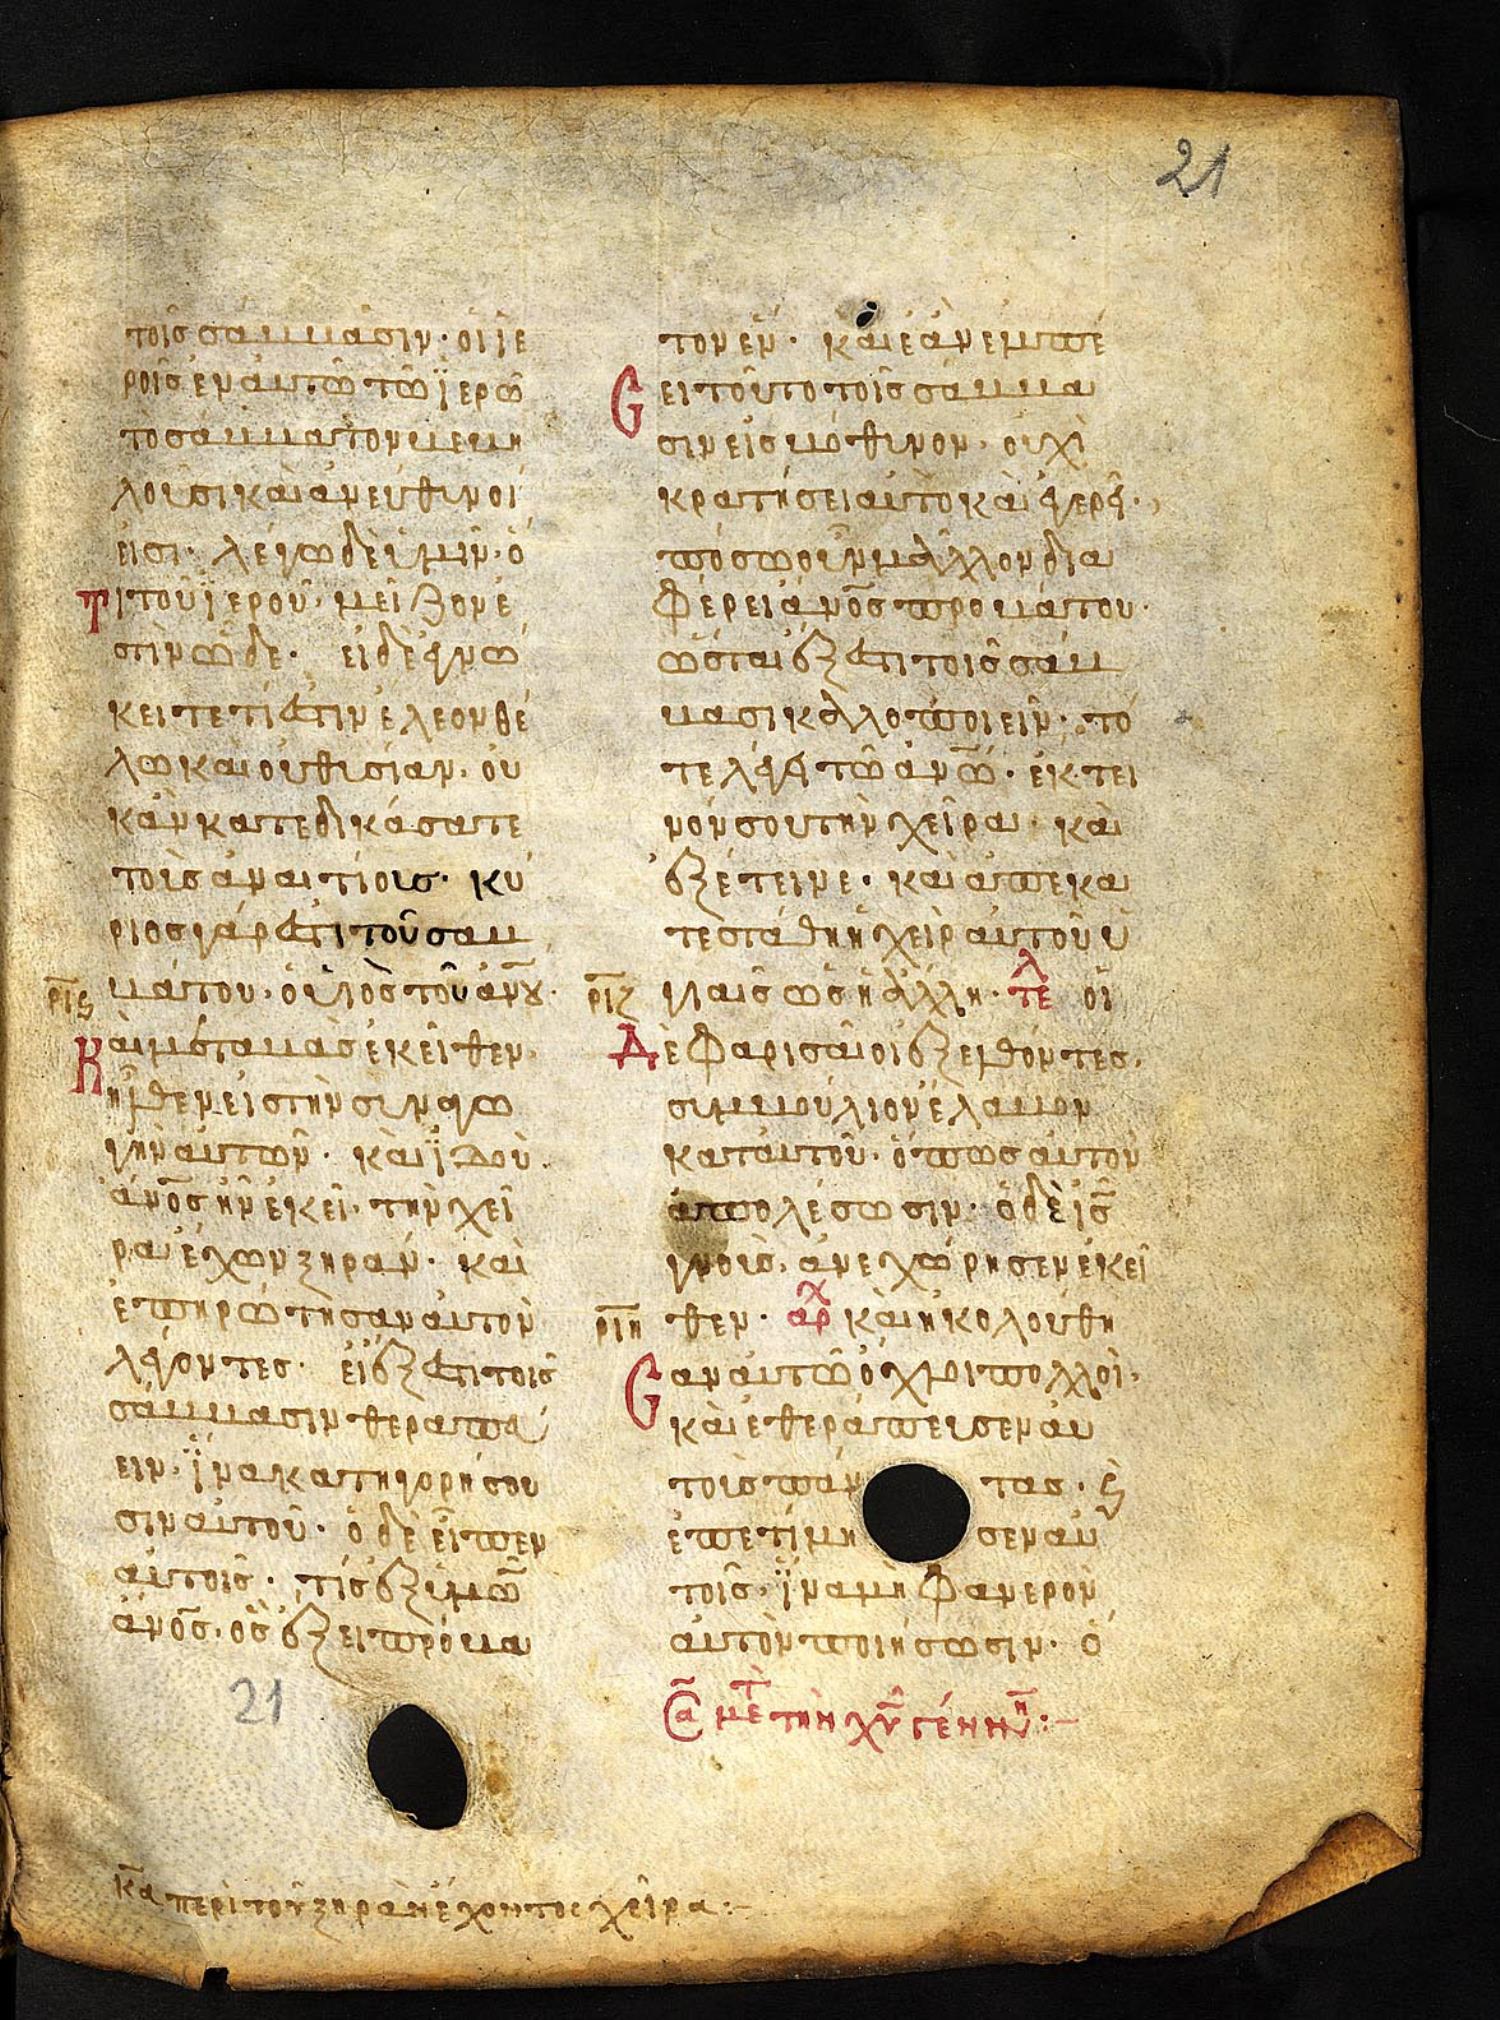 21
τοῖς σάββασιν· οἱ ἱε
ρεῖς ἐν αὐτῶ τῶ ἱερῶ
τὸ σάββατον βεβη
λοῦσι καὶ ἀνεύθυνοί
εἰσι· λέγω δὲ ὑμῖν· ὅ
τι τοῦ ἱεροῦ, μεῖζον ἐ
στὶν ὧδε· εἰ δὲ ἐγνώ
κειτε τί ἐστιν ἔλεον θέ
λω καὶ οὐ θυσίαν· οὐ
κ ἂν κατεδικάσατε
τοὺς ἀναιτίους· κύ
ριος γάρ ἐστι τοῦ σαβ
ρις βάτου· ὁ υἱὸς τοῦ ἀνου·
Καὶ μεταβὰς ἐκεῖθεν·
ἦλθεν εἰς τὴν συναγω
γὴν αὐτῶν· καὶ ἰδοὺ
ἀνος ἦν ἐκεῖ· τὴν χεῖ
ρα ἔχων ξηράν· καὶ
ἐπηρώτησαν αὐτὸν
λέγοντες· εἰ ἔξεστι τοῖς
σάββασιν θεραπεύ
ειν· ἵνα κατηγορήσου
σιν αὐτοῦ· ὁ δὲ εἶπεν
αὐτοῖς· τίς ἐξ ὑμῶν
ἀνος· ὃς ἕξει πρόβα
21
τον ἕν· καὶ ἐὰν ἐμπέ
σει τοῦτο τοῖς σάββα
σιν εἰς βόθυνον· οὐχὶ
κρατήσει αὐτὸ καὶ ἐγερεῖ·
πόσω οὖν μᾶλλον δια
φέρει ἀνος προβάτου·
ὥσται ἔξεστι τοῖς σάβ
βασι καλλοποιεῖν· τό
τε λέγει τῶ ἀνω· ἔκτει
νόν σου τὴν χεῖρα· καὶ
ἐξέτεινε· καὶ ἀπεκα
τεστάθη ἡ χεὶρ αὐτοῦ ὑ
ριζ γιαὶς ὡς ἡ ἄλλη· τελ οἱ
δὲ φαρισαῖοι ἐξελθόντες·
συμβούλιον ἔλαβον
κατ' αὐτοῦ· ὅπως αὐτὸν
ἀπολέσωσιν· ὁ δὲ ις
γνοὺς, ἀνεχώρησεν ἐκεῖ
ριη θεν· αρχ καὶ ἠκολούθη
σαν αὐτῶ ὄχλοι πολλοὶ·
καὶ ἐθεράπευσεν αὐ
τοὺς πάντας· καὶ
ἐπετίμησεν αὐ
τοῖς· ἵνα μὴ φανερὸν
αὐτὸν ποιήσωσιν· ὁ
Σα μετ τὴν χυ γέννην:-
κα περὶ τοῦ ξηρὰν ἔχοντος χεῖρα:-